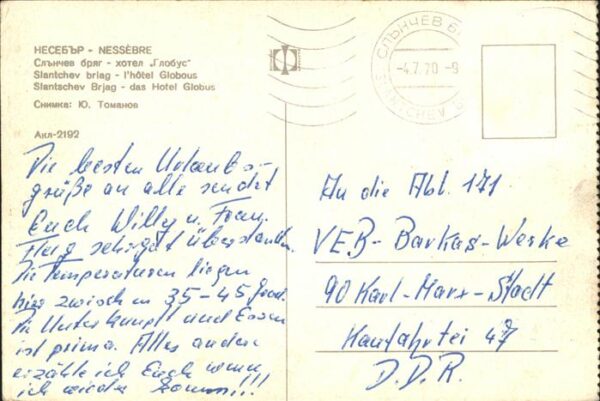 НЕСЕБЪР - NESSÈBRE
Слънчев бряг - хотел „Глобус"
Slantchev briag - l'hôtel Globous
Slantschev Brjag - das Hotel Globus
Снимка: Ю. Томанов
Акл-2192
СЛЪНЧЕВ
-4.7.70-9
SLANTCHEV
Die besten Urlaubs-
grüße an alle sendet
Euch Willy u. Frau.
Flug sehr gut überstanden.
Die Temperaturen liegen
hier zwischen 35-45 Grad.
Die Unterkunft und Essen
ist prima. Alles andere
erzähle ich Euch wenn
ich wieder komm!!!
An die Abt. 171
VEB-Barkas-Werke
90 Karl-Marx-Stadt
Kauffahrtei 47
D.D.R.